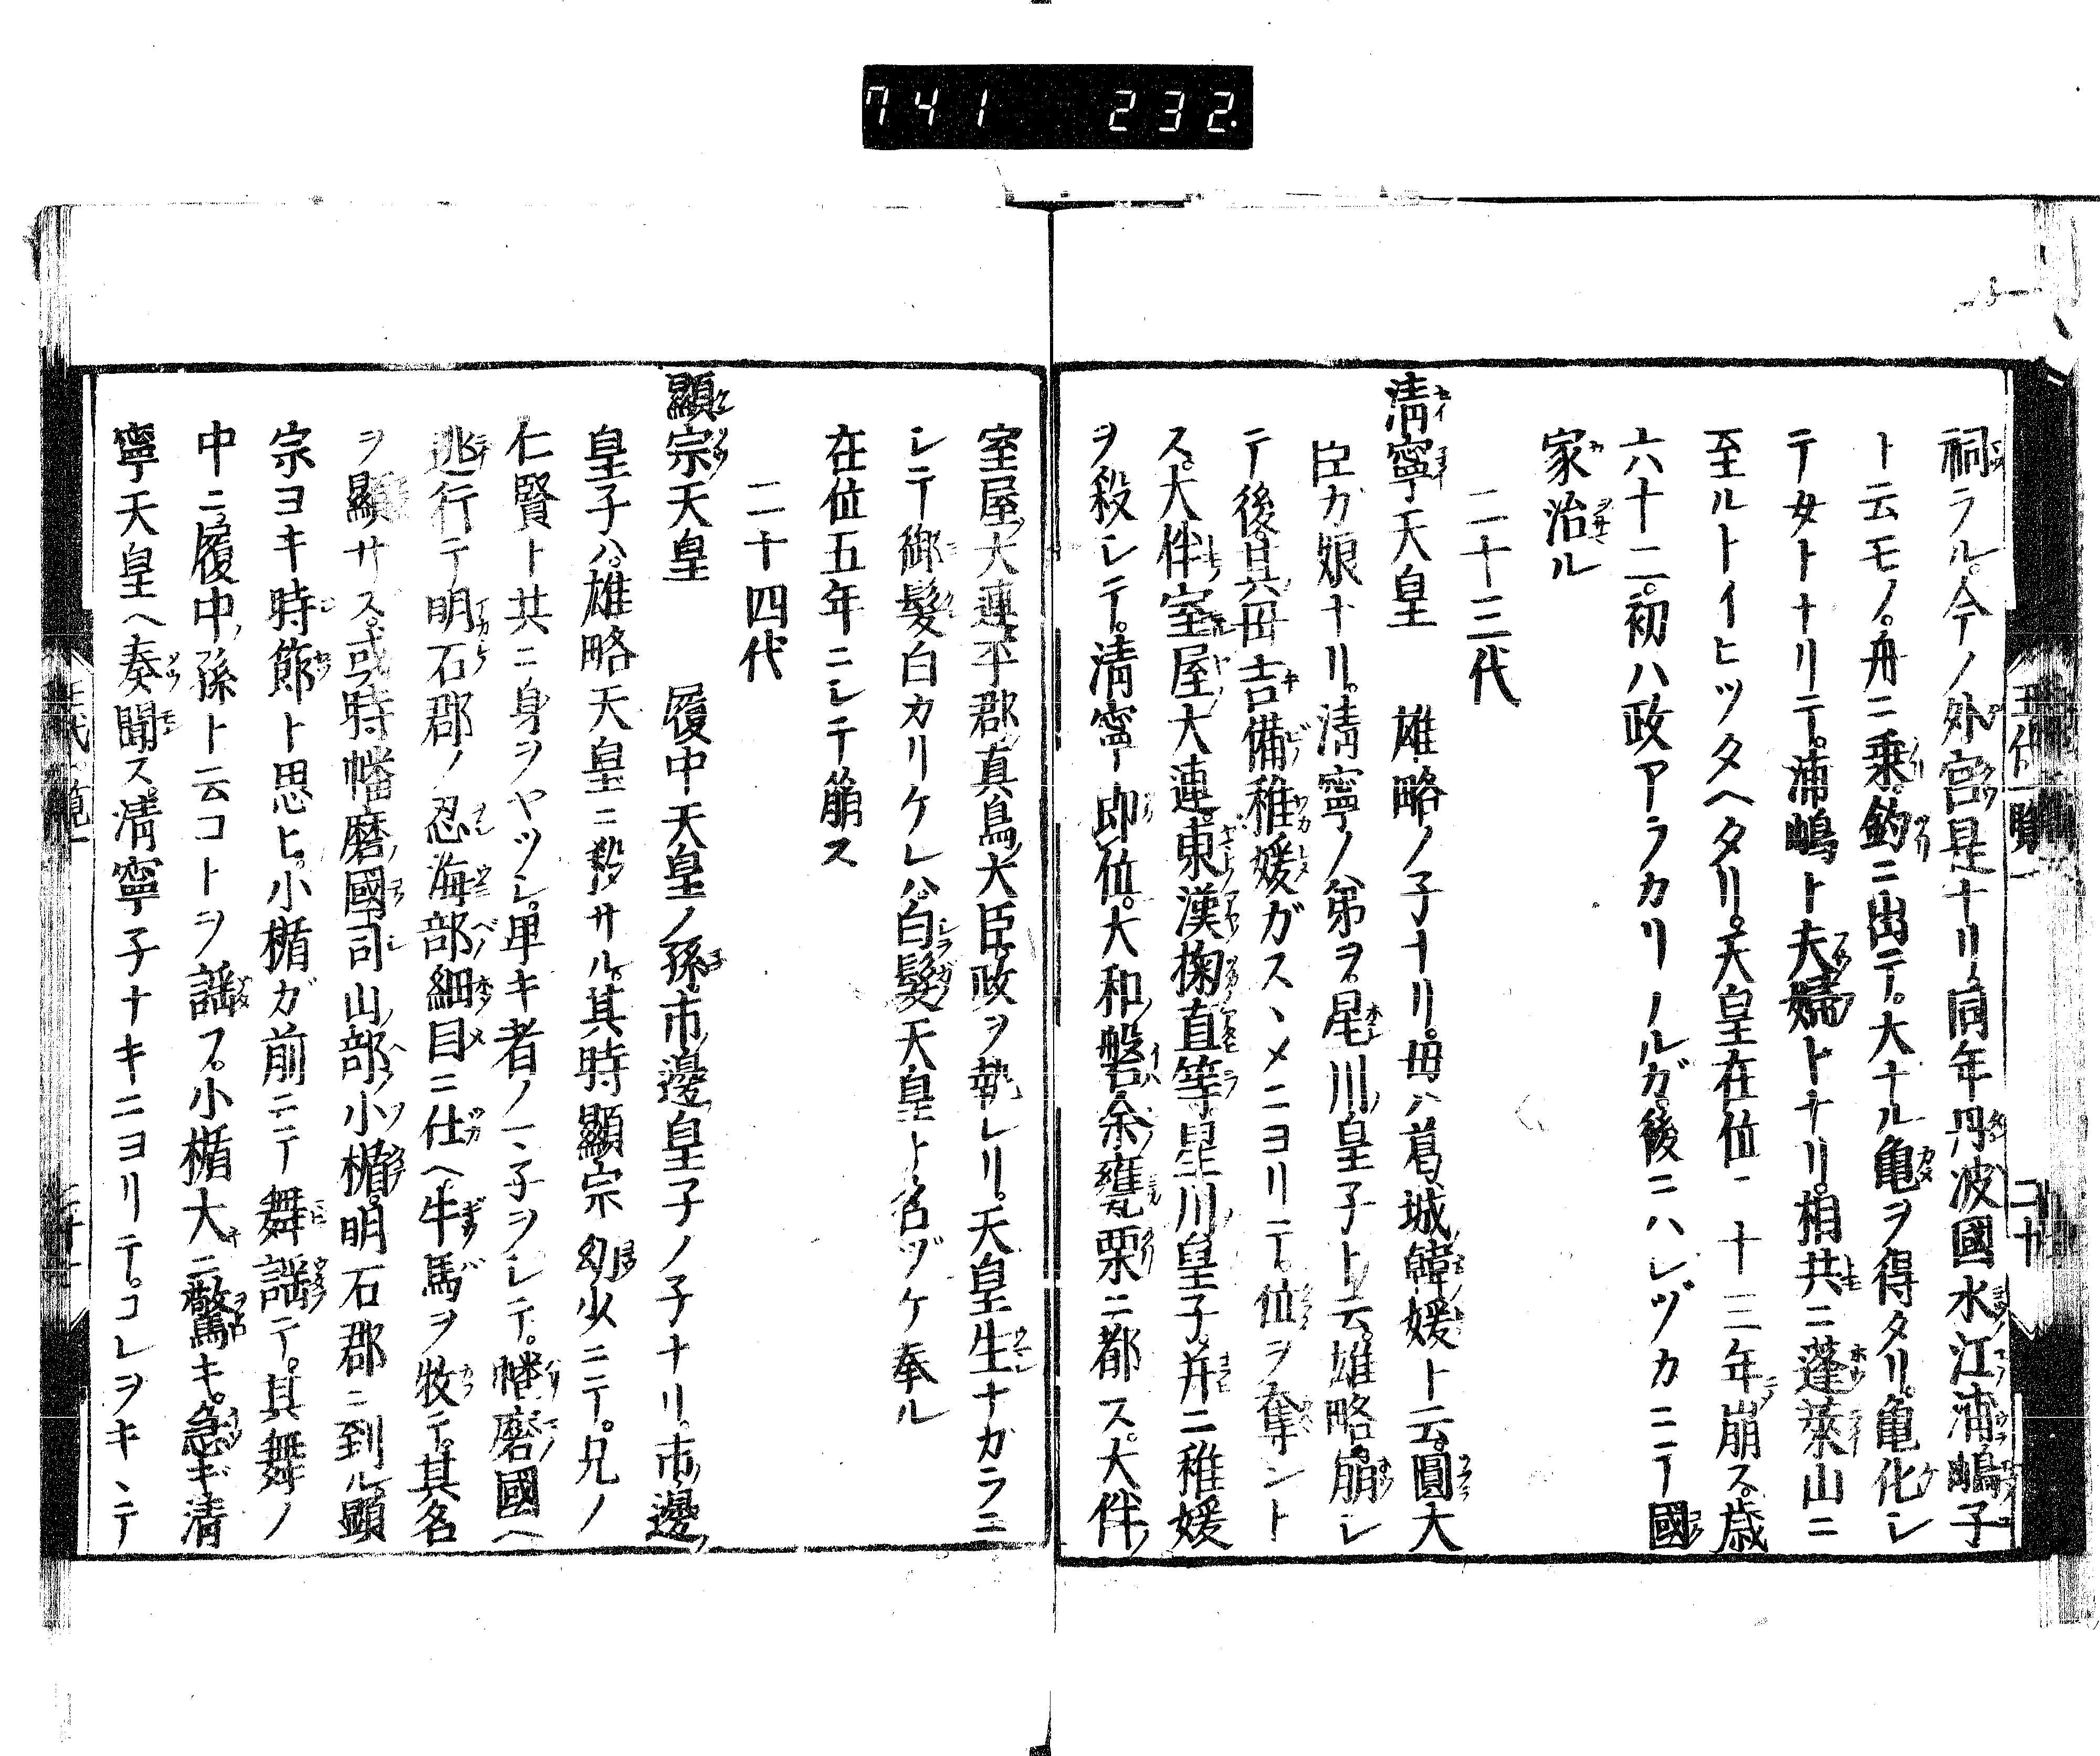 741 232.
祠ラル。今ノ外宮是ナリ。同年丹波國水江浦嶋子
ト云モノ。舟ニ乗。釣ニ出テ。大ナル亀ヲ得タリ。亀化シ
テ女トナリテ。浦嶋ト夫婦トナリ。相共ニ蓬萊山ニ
至ルトイヒツタヘタリ。天皇在位二十三年崩ス。歳
六十二。初ハ政アラカリノルガ。後ニハシヅカニテ國
家治ル
二十三代
淸寧天皇　雄略ノ子ナリ。母ハ葛城韓媛ト云。圓大
臣カ娘ナリ。淸寧ノ弟ヲ星川皇子ト云。雄略崩シ
テ後。其母吉備稚媛ガスヽメニヨリテ。位ヲ奪ント
ス。大伴室屋大連。東漢掬直等。星川皇子并ニ稚媛
ヲ殺シテ。淸寧即位。大和磐余甕栗ニ都ス。大伴
室屋大連平郡真鳥大臣政ヲ執レリ。天皇生ナガラニ
シテ御髮白カリケレバ。白髮天皇ト名ヅケ奉ル
在位五年ニシテ崩ス
二十四代
顯宗天皇　履中天皇ノ孫。市邊皇子ノ子ナリ。市邊
皇子ハ。雄略天皇ニ殺サル。其時顯宗幼少ニテ。兄ノ
仁賢ト共ニ身ヲヤツシ。卑キ者ノマ子ヲシテ。幡磨國ヘ
逃行テ明石郡ノ忍海部細目ニ仕ヘ。牛馬ヲ牧テ。其名
ヲ顯サス。或時幡磨國司山部小楯。明石郡ニ到ル。顯
宗ヨキ時節ト思ヒ。小楯ガ前ニテ舞謡テ。其舞ノ
中ニ履中ノ孫ト云コトヲ謡フ。小楯大ニ驚キ。急ギ淸
寧天皇ヘ奏聞ス。淸寧子ナキニヨリテ。コレヲキヽテ